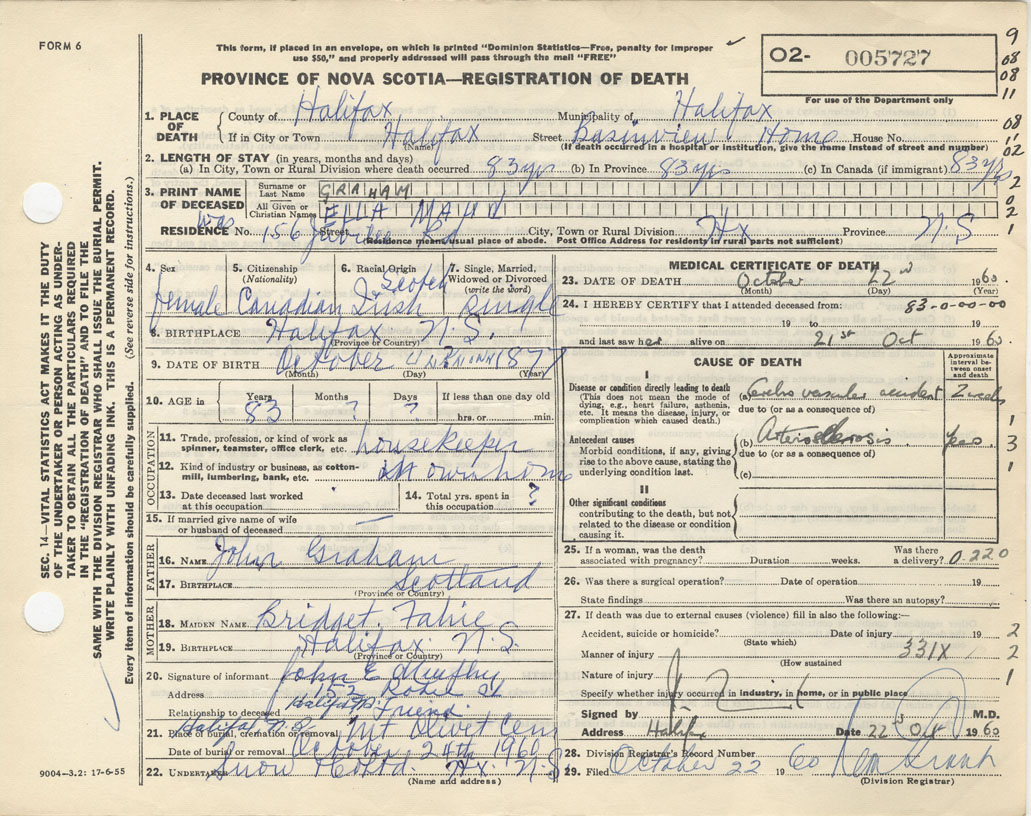 FORM 6
This form, if placed in an envelope, on which is printed "Dominion Statistics—Free, penalty for improper
use $50," and properly addressed will pass through the mail "FREE"
PROVINCE OF NOVA SCOTIA—REGISTRATION OF DEATH
O2- 005727
For use of the Department only
9
08
08
11
08
1
02
2
0
2
1
1. PLACE OF DEATH
County of Halifax Municipality of Halifax
If in City or Town Halifax Street Basinview Home House No.
(Name) (If death occurred in a hospital or institution, give the name instead of street and number)
2. LENGTH OF STAY (in years, months and days)
(a) In City, Town or Rural Division where death occurred 83 yrs (b) In Province 83 yrs (c) In Canada (if immigrant) 83 yrs
3. PRINT NAME OF DECEASED
Surname or Last Name GRAHAM
All Given or Christian Names ELLA MAUD
was
RESIDENCE No. 156 Jubilee Rd Street City, Town or Rural Division Hx Province N.S
(Residence means usual place of abode. Post Office Address for residents in rural parts not sufficient)
4. Sex female
5. Citizenship (Nationality) Canadian
6. Racial Origin Scotch Irish
7. Single, Married, Widowed or Divorced (write the word) Single
8. BIRTHPLACE Halifax N.S.
(Province or Country)
9. DATE OF BIRTH October 1877
(Month) (Day) (Year)
10. AGE in Years 83 Months ? Days ? If less than one day old
hrs. or min.
OCCUPATION
11. Trade, profession, or kind of work as spinner, teamster, office clerk, etc. housekeeper
12. Kind of industry or business, as cotton-mill, lumbering, bank, etc. in own home
13. Date deceased last worked at this occupation
14. Total yrs. spent in this occupation ?
15. If married give name of wife or husband of deceased —
FATHER
16. NAME John Graham
17. BIRTHPLACE Scotland
(Province or Country)
MOTHER
18. MAIDEN NAME Bridget Fahie
19. BIRTHPLACE Halifax N.S.
(Province or Country)
20. Signature of informant John E Murphy
Address 152 St
Halifax N.S.
Relationship to deceased Friend
21. Place of burial, cremation or removal Halifax N.S. Mt Olivet Cem
Date of burial or removal October 24th 1960
22. UNDERTAKER Snow & Co Ltd. Hx. N.S
(Name and address)
MEDICAL CERTIFICATE OF DEATH
23. DATE OF DEATH October 22nd 1960
(Month) (Day) (Year)
24. I HEREBY CERTIFY that I attended deceased from: 83-0-00-00
19 to 19
and last saw her alive on 21st Oct 1960
CAUSE OF DEATH
Approximate interval between onset and death
I
Disease or condition directly leading to death
(This does not mean the mode of dying, e.g., heart failure, asthenia, etc. It means the disease, injury, or complication which caused death.)
(a) Cerebro vascular accident 2 weeks
due to (or as a consequence of)
Antecedent causes
Morbid conditions, if any, giving rise to the above cause, stating the underlying condition last.
(b) Arteriosclerosis Yrs.
due to (or as a consequence of)
(c)
1
3
1
II
Other significant conditions
contributing to the death, but not related to the disease or condition causing it.
25. If a woman, was the death associated with pregnancy? Duration weeks. Was there a delivery? 0.220
26. Was there a surgical operation? Date of operation 19
State findings Was there an autopsy?
27. If death was due to external causes (violence) fill in also the following:—
Accident, suicide or homicide? Date of injury 19 2
(State which)
Manner of injury 331X 2
(How sustained)
Nature of injury 1
Specify whether injury occurred in industry, in home, or in public place
Signed by M.D.
Address Halifx Date 22nd Oct 1960
28. Division Registrar's Record Number
29. Filed October 22 1960
(Division Registrar)
SEC. 14—VITAL STATISTICS ACT MAKES IT THE DUTY
OF THE UNDERTAKER OR PERSON ACTING AS UNDER-
TAKER TO OBTAIN ALL THE PARTICULARS REQUIRED
IN THE "REGISTRATION OF DEATH" AND TO FILE THE
SAME WITH THE DIVISION REGISTRAR WHO SHALL ISSUE THE BURIAL PERMIT.
WRITE PLAINLY WITH UNFADING INK. THIS IS A PERMANENT RECORD.
Every item of information should be carefully supplied. (See reverse side for instructions.)
9004—3.2: 17-6-55